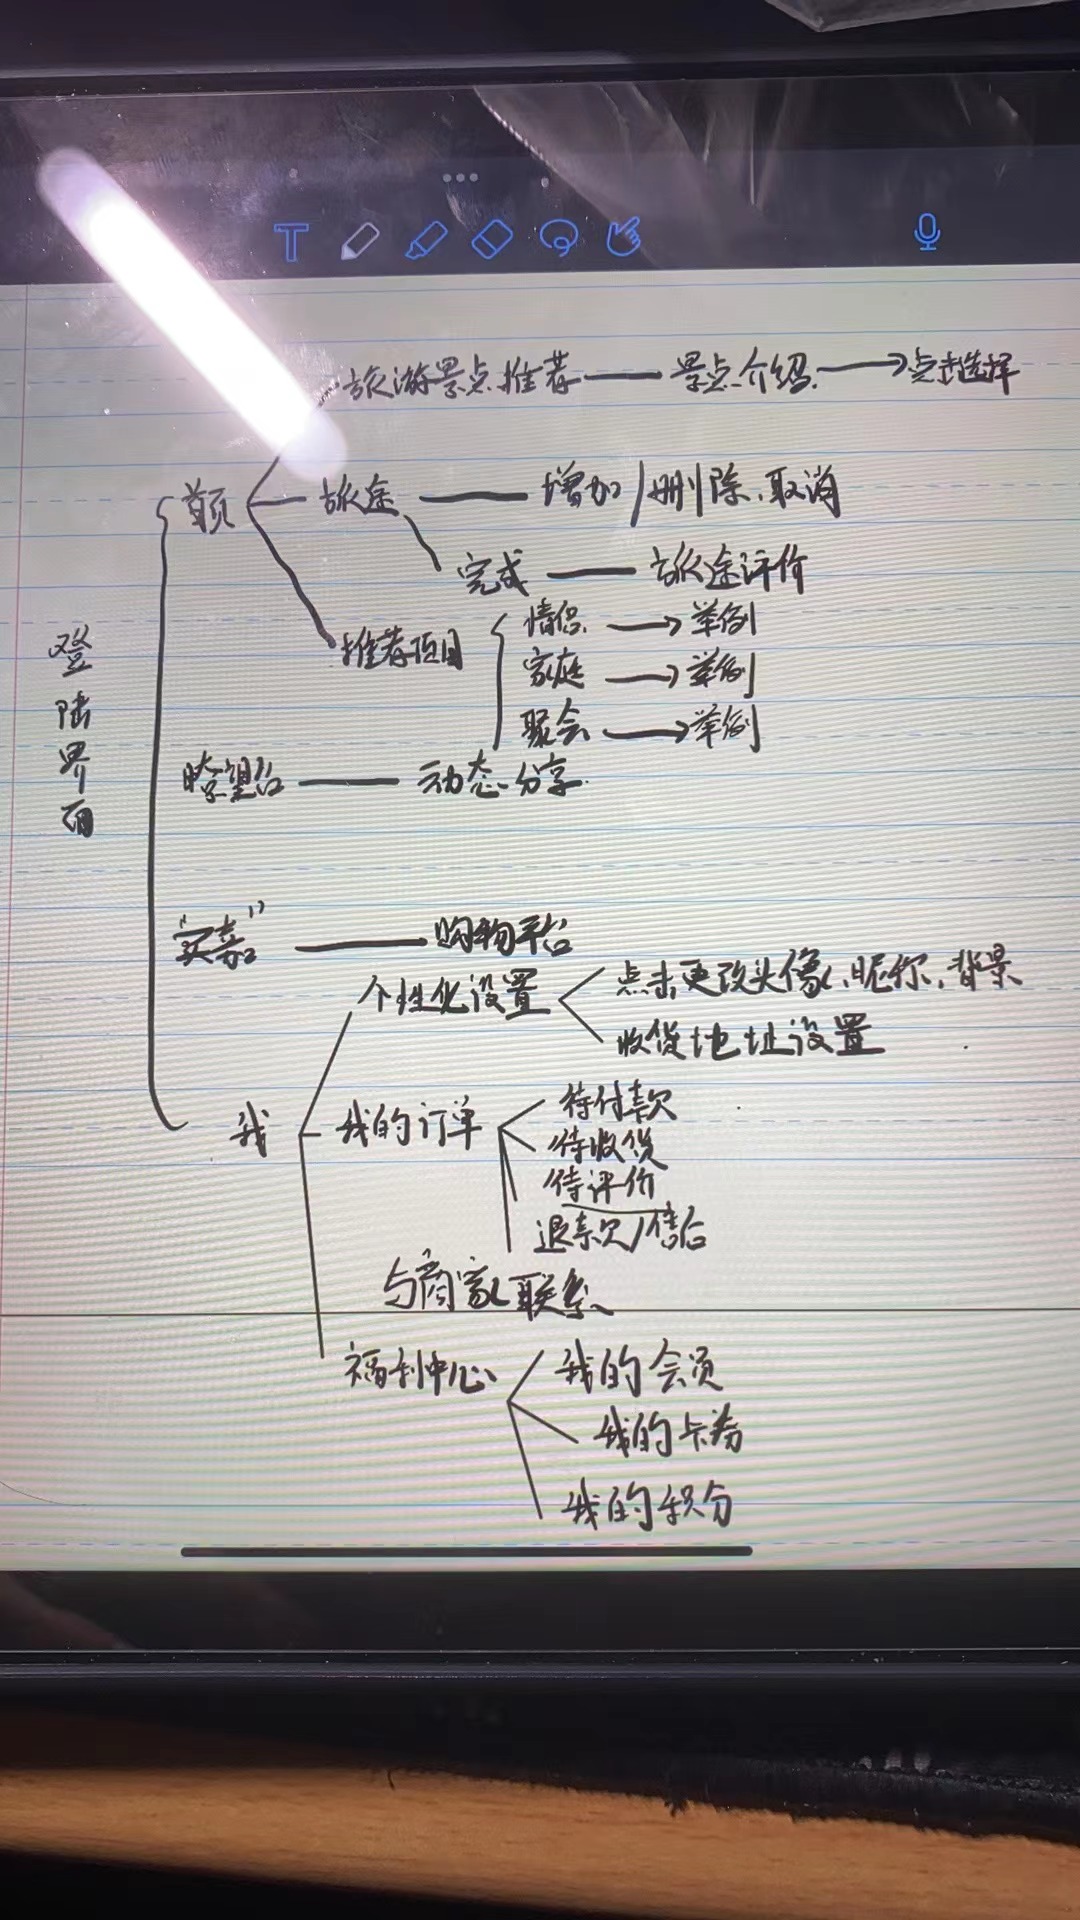 旅游景点推荐 景点介绍 点击选择
首页 旅途 增加/删除、取消
完成 旅途评价
登陆界面
推荐项目 情侣 举例
家庭 举例
聚会 举例
瞭望台 动态分享
购物平台
个性化设置 点击更改头像、昵你、背景
收货地址设置
我 我的订单 待付款
待收货
待评价
退款/售后
与商家联系
福利中心 我的会员
我的卡券
我的积分